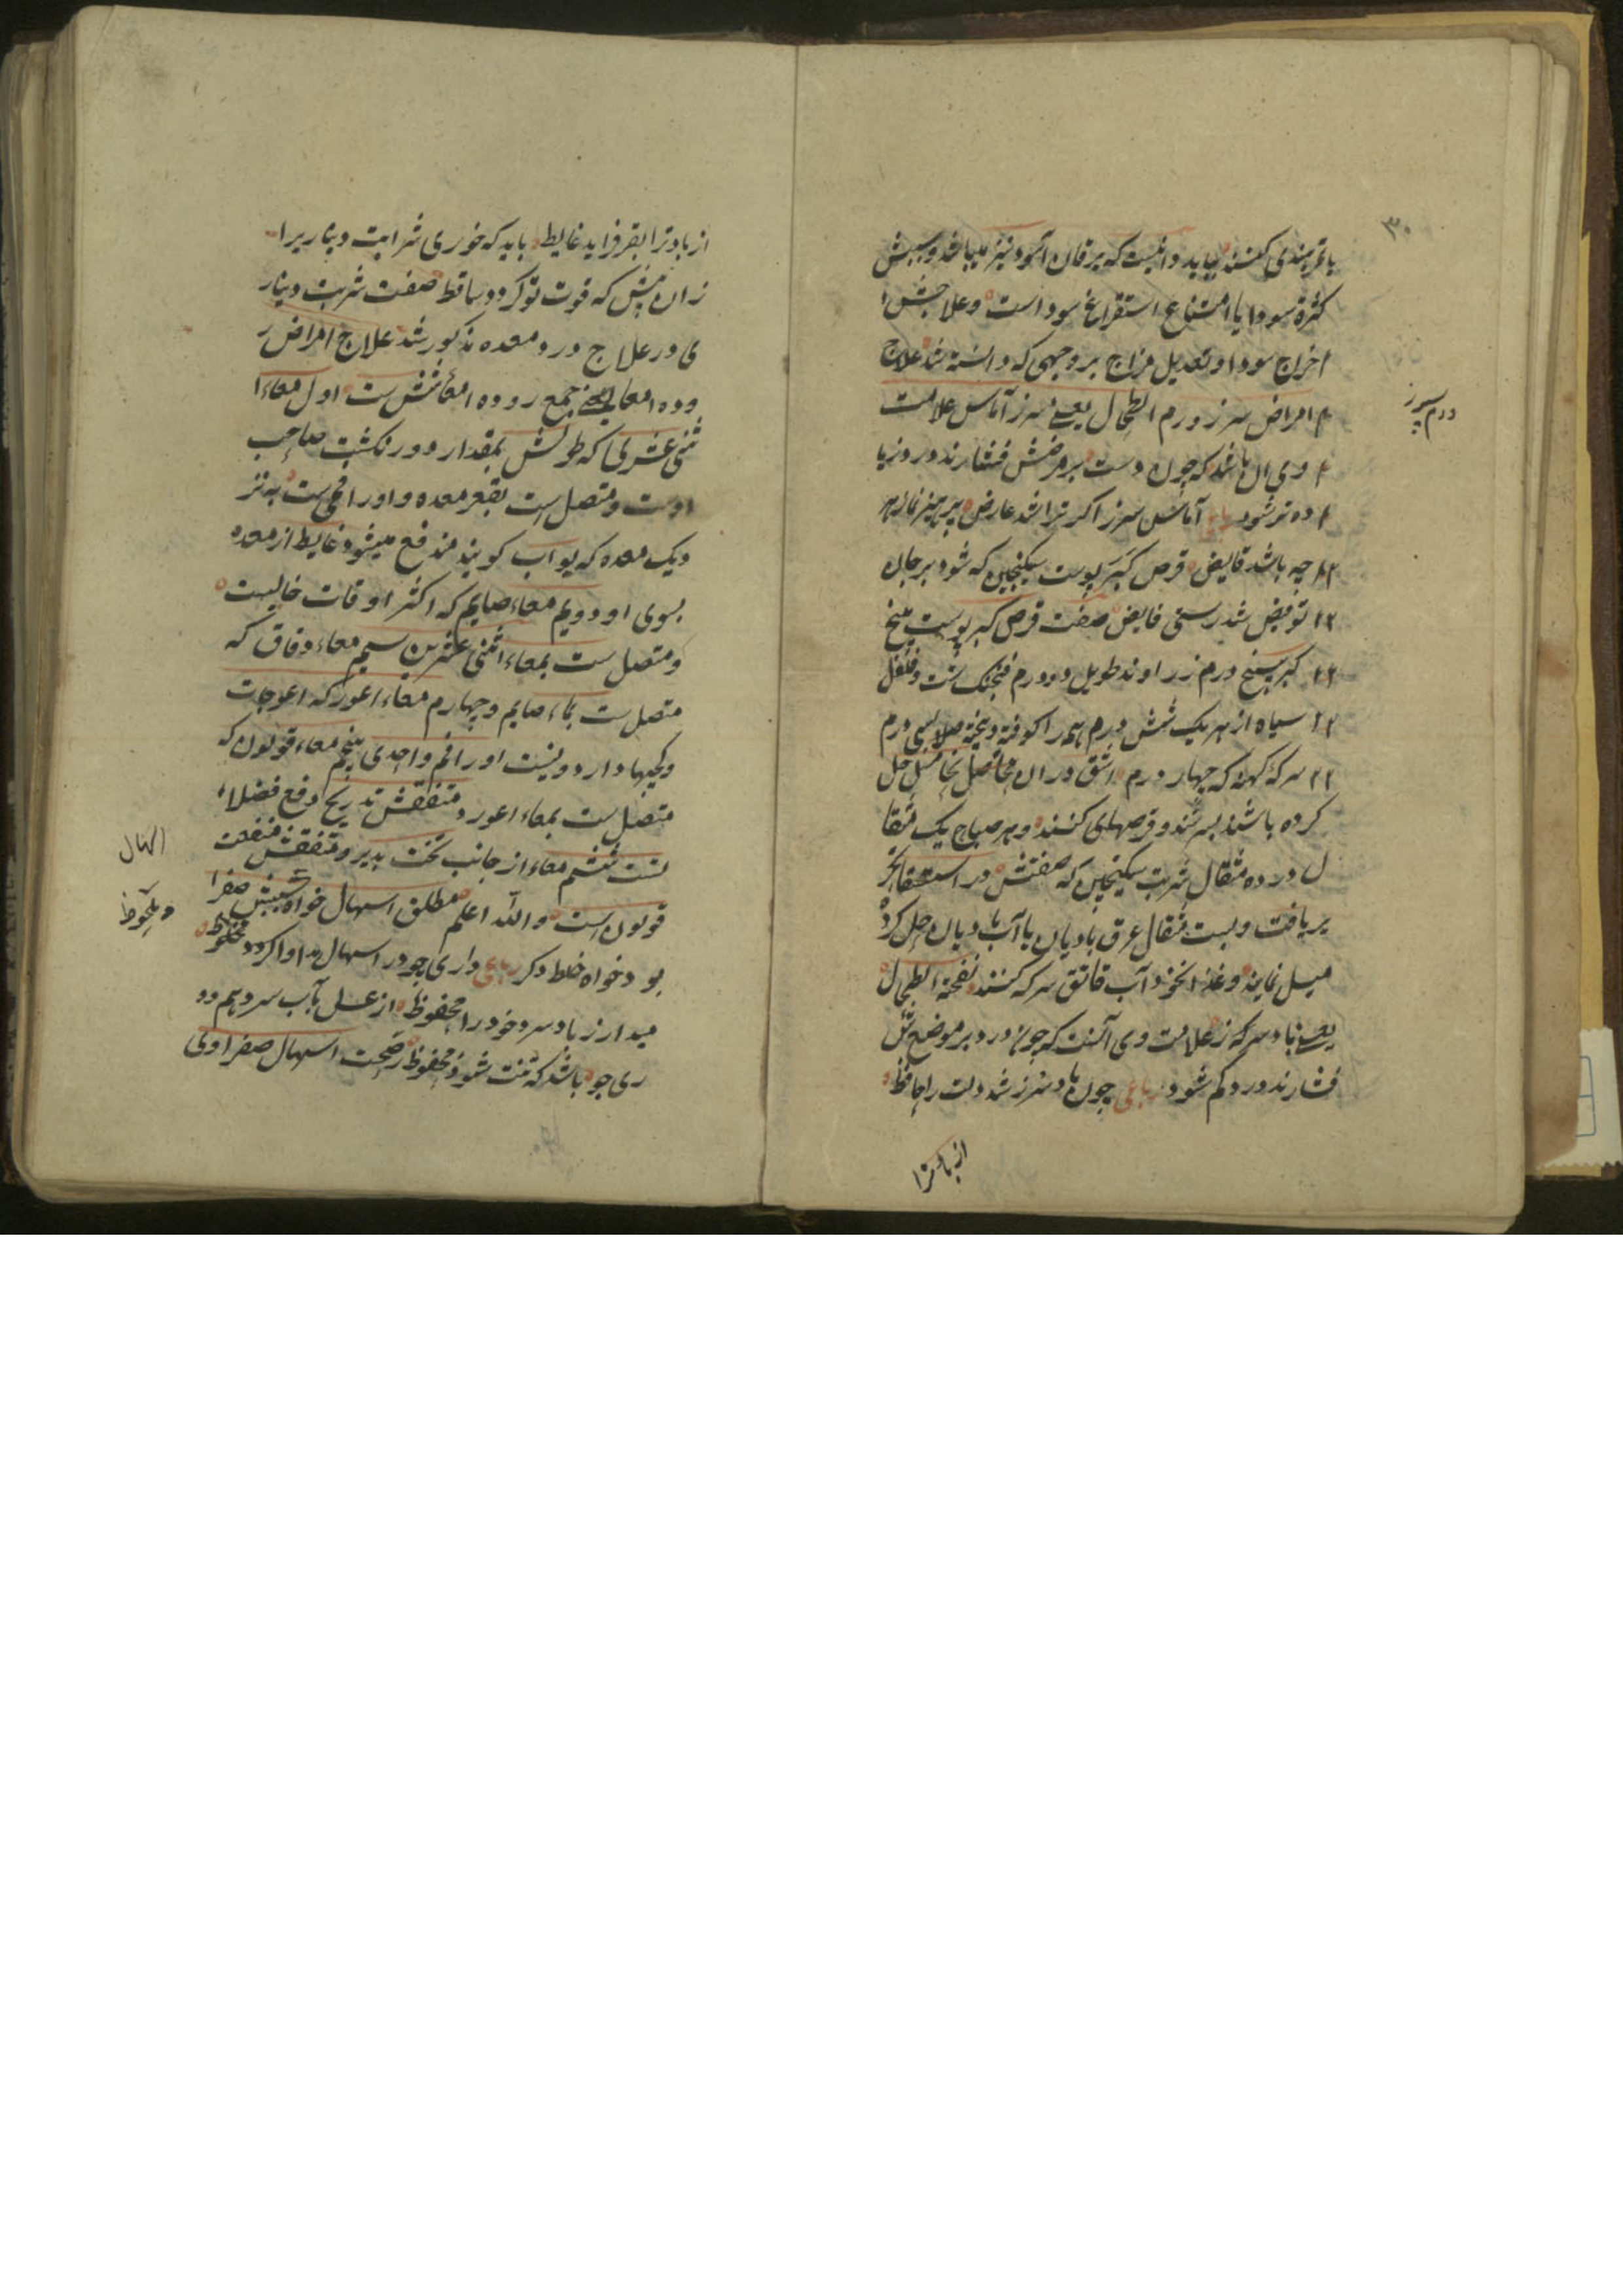 ۳۰
با تمرهندی کنند بباید دانست که یرقان اسود نیز میباشد و سببش
کثرة سودا یا امتناع استفراغ سودا است و علاجش ا
اخراج سودا و تعدیل مزاج بروجهی که دانسته شد علاج
امراض سرز ورم الطحال یعنی سرز آماس علامت
ورم سپرز
وی ان باشد که چون دست بر مرضش فشارند درد زیا
ده تر شود رباعی آماس سرز اگر ترا شد عارض پرهیز نما زهر
چه باشد قابض قرص کبر بوست سکنجبین که شود بر جان
تو فیض تندرستی فایض صفت قرص کبر پوست بیخ
کبر پنج درم زراوند طویل دو درم فنجنکشت و فلفل
سیاه از هر یک شش درم همه را کوفته و بیخته صلا سی درم
سرکه کهنه که چهار درم اشق در ان حل
کرده باشند بسرشند و قرصهای کنند و هر صباح یک مثقا
ل در ده مثقال شربت سکنجبین که صفتش در استسقا تحر
یر یافت و بیست مثقال عرق بادیان یا آب بادیان حل کرده
میل نمایند و غذا نخود آب قاتق سرکه کنند نفخة الطحال
یعنی باد سرکه ز علامت وی آنست که چون درد بر موضع تنگ
فشارند درد کم شود رباعی چون باد سرز شد دلت را حافظ
از باد ترا
از باد ترا بقر فزاید غایط باید که خوری شرابت دیناریرا
زان پیش که قوت تو کردد ساقط صفت شربت دینار
ی در علاج درد معده مذکور شد علاج امراض ر
وده امعا یعنی جمع روده امعا شش ست اول معاء ا
ثنی عشری که طولش بمقدار دوازنکشت صاحب
اوست و متصل است بقعر معده و او را فمی ست به نز
دیک معده که بواب کویند مندفع میشود غایط از معده
بسوی او دویم معاء صایم که اکثر اوقات خالیست
و متصل ست بمعاء اثنی عشرین سیم معاء دقاق که
متصل ست بمعاء صایم و چهارم معاء اعور که اعوجات
و کجیها دارد و نیست او را فم واحدی پنجم معاء قولون که
متصل ست بمعاء اعور و منفعتش تدریج دفع فضلا
تست ششم معاء از جانب تحت بدبر و منفعتش منفعت
قولون است والله اعلم مطلق اسهال خواه سببش صفرا
اسهال
بود خواه خلط دکر رباعی داری چو در اسهال مداوا کردد محفوظ
و ملحوظ
میدار ز باد سرد خود را محفوظ از غسل بآب سرد هم دو
ری جو باشد که تنت شود محفوظ ز صحت اسهال صفراوی